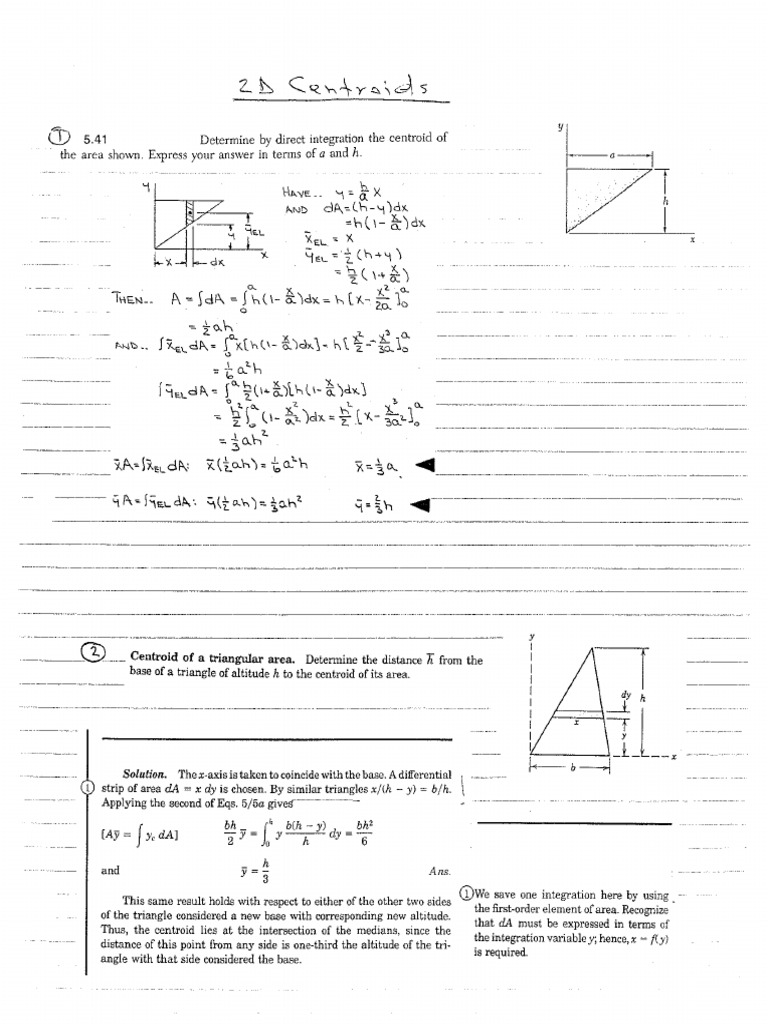 2D Centroids
① 5.41 Determine by direct integration the centroid of
the area shown. Express your answer in terms of a and h.
y
a
h
x
y
y
ȳEL
x
x
dx
HAVE.. y = h/a x
AND dA=(h-y)dx
=h(1-x/a)dx
x̄EL = x
ȳEL = 1/2(h+y)
= h/2(1+x/a)
THEN.. A = ∫dA = ∫₀ᵃ h(1-x/a)dx = h[x-x²/2a]₀ᵃ
= 1/2 ah
AND.. ∫x̄EL dA = ∫₀ᵃ x[h(1-x/a)dx] = h[x²/2 - x³/3a]₀ᵃ
= 1/6 a²h
∫ȳEL dA = ∫₀ᵃ h/2(1+x/a)[h(1-x/a)dx]
= h²/2 ∫₀ᵃ (1-x²/a²)dx = h²/2 [x-x³/3a²]₀ᵃ
= 1/3 ah²
x̄A=∫x̄EL dA: x̄(1/2 ah) = 1/6 a²h x̄ = 1/3 a
ȳA=∫ȳEL dA: ȳ(1/2 ah) = 1/3 ah² ȳ = 2/3 h
② Centroid of a triangular area. Determine the distance h̄ from the
base of a triangle of altitude h to the centroid of its area.
y
dy
h
x
y
x
b
Solution. The x-axis is taken to coincide with the base. A differential
① strip of area dA = x dy is chosen. By similar triangles x/(h − y) = b/h.
Applying the second of Eqs. 5/5a gives
[Aȳ = ∫ yc dA] bh/2 ȳ = ∫₀ʰ y b(h − y)/h dy = bh²/6
and ȳ = h/3 Ans.
This same result holds with respect to either of the other two sides
of the triangle considered a new base with corresponding new altitude.
Thus, the centroid lies at the intersection of the medians, since the
distance of this point from any side is one-third the altitude of the tri-
angle with that side considered the base.
① We save one integration here by using
the first-order element of area. Recognize
that dA must be expressed in terms of
the integration variable y; hence, x = f(y)
is required.